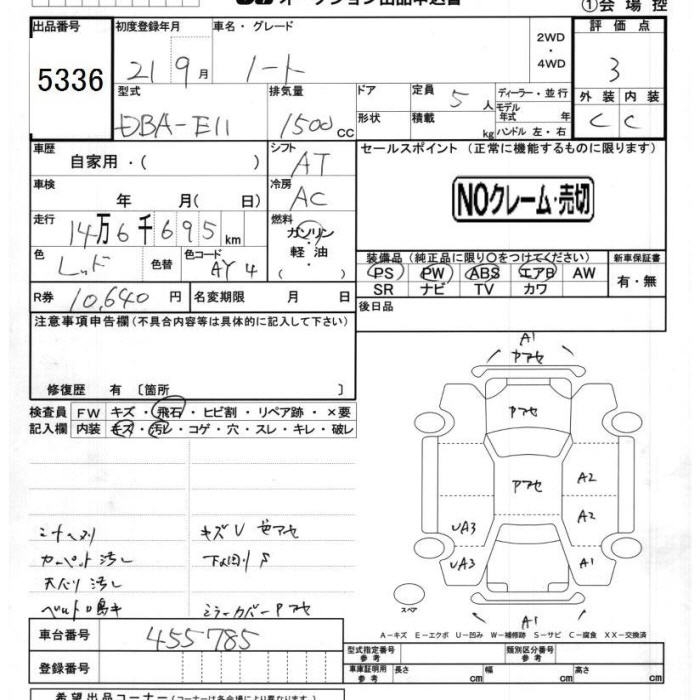 オークション出品申込書
①会場控
出品番号 初度登録年月 車名・グレード 評価点
5336 21 9月 ノート 2WD・4WD 3
型式 排気量 ドア 定員 ディーラー・並行 外装 内装
DBA-E11 1500CC 5人 モデル年式 年 C C
形状 積載 kg ハンドル 左・右
車歴 シフト セールスポイント (正常に機能するものに限ります)
自家用・( ) AT
車検 冷房
年 月( 日) AC NOクレーム・売切
走行 燃料
14万6千695km ガソリン・軽油・( )
色 色替 色コード 装備品 (純正品に限り○をつけてください) 新車保証書
レッド AY4 PS PW ABS エアB AW 有・無
SR ナビ TV カワ
R券 10,640円 名変期限 月 日 後日品
注意事項申告欄(不具合内容等は具体的に記入して下さい)
修復歴 有 〔箇所 〕
検査員 FW キズ・飛石・ヒビ割・リペア跡・×要
記入欄 内装 キズ・汚レ・コゲ・穴・スレ・キレ・破レ
A1
Pアセ
Pアセ
Pアセ A2
A2
UA3
UA3 A1
A1
スペア
キズU
カーペット汚し
天バリ汚し
ミラーカバーPアセ
A-キズ E-エクボ U-凹み W-補修跡 S-サビ C-腐食 XX-交換済
車台番号 455-785
登録番号
型式指定番号 参考 類別区分番号 参考
車庫証明用 参考 長さ cm 幅 cm 高さ cm
希望出品コーナー(コーナーは各会場により異なります)